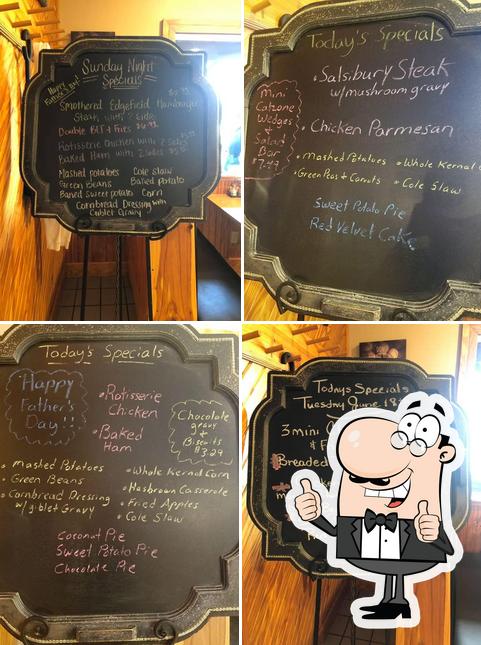 Sunday Night
Specials
Happy
Father's Day!
Smothered Edgefield Hamburger
Steak with 2 sides
Double BLT & Fries $6.99
Rotisserie Chicken with 2 Sides
Baked Ham with 2 sides
Mashed potatoes Cole slaw
Green Beans Baked potato
Baked Sweet potato Corn
Cornbread Dressing with
Giblet Gravy
Today's Specials
• Salsibury Steak
w/mushroom gravy
Mini
Calzone
Wedges
&
Salad
Bar
$7.49
• Chicken Parmesan
• Mashed Potatoes • Whole Kernal
• Green Peas & Carrots • Cole Slaw
Sweet Potato Pie
Red Velvet Cake
Today's Specials
Happy
Father's
Day!!
• Rotisserie
Chicken
• Baked
Ham
Chocolate
gravy
&
Biscuits
$3.29
• Mashed Potatoes • Whole Kernal Corn
• Green Beans • Hasbrown Casserole
• Cornbread Dressing • Fried Apples
w/giblet Gravy • Cole Slaw
Coconut Pie
Sweet Potato Pie
Chocolate Pie
Todays Specials
Tuesday June
3 mini
Breaded